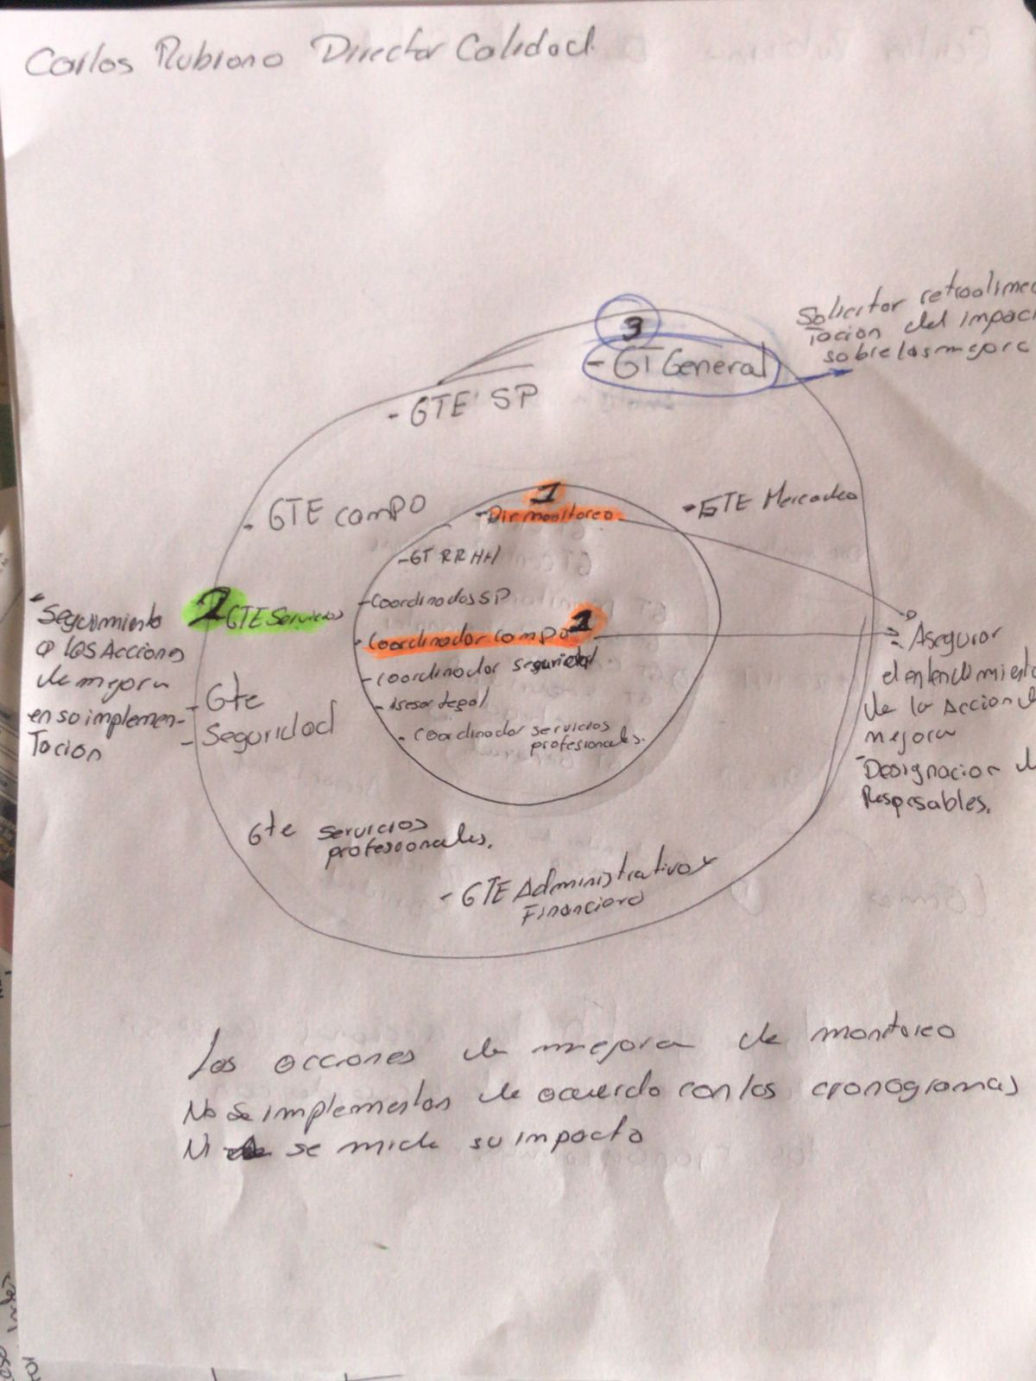 Carlos Rubiano Director Calidad
3
- GT General
Solicitar retroalimen
tacion del impac
sobre las mejora
- GTE SP
- GTE campo
1
- Dir monitoreo
- GTE Mercadeo
- GT RRHH
2 GTE Servicios
- Coordinador SP
- Coordinador campo 1
- coordinador seguridad
- Asesor legal
- Coordinador servicios
profesionales.
- Seguimiento
a las Acciones
de mejora
en so implemen-
Tacion
- Gte
- Seguridad
- Asegurar
el entendimiento
de la Accion de
mejora
- Designacion d
Resposables.
Gte servicios
profesionales.
- GTE Administrativo y
Financiero
Las acciones de mejora de monitoreo
No se implementan de acuerdo con los cronogramas
Ni se mide su impacto